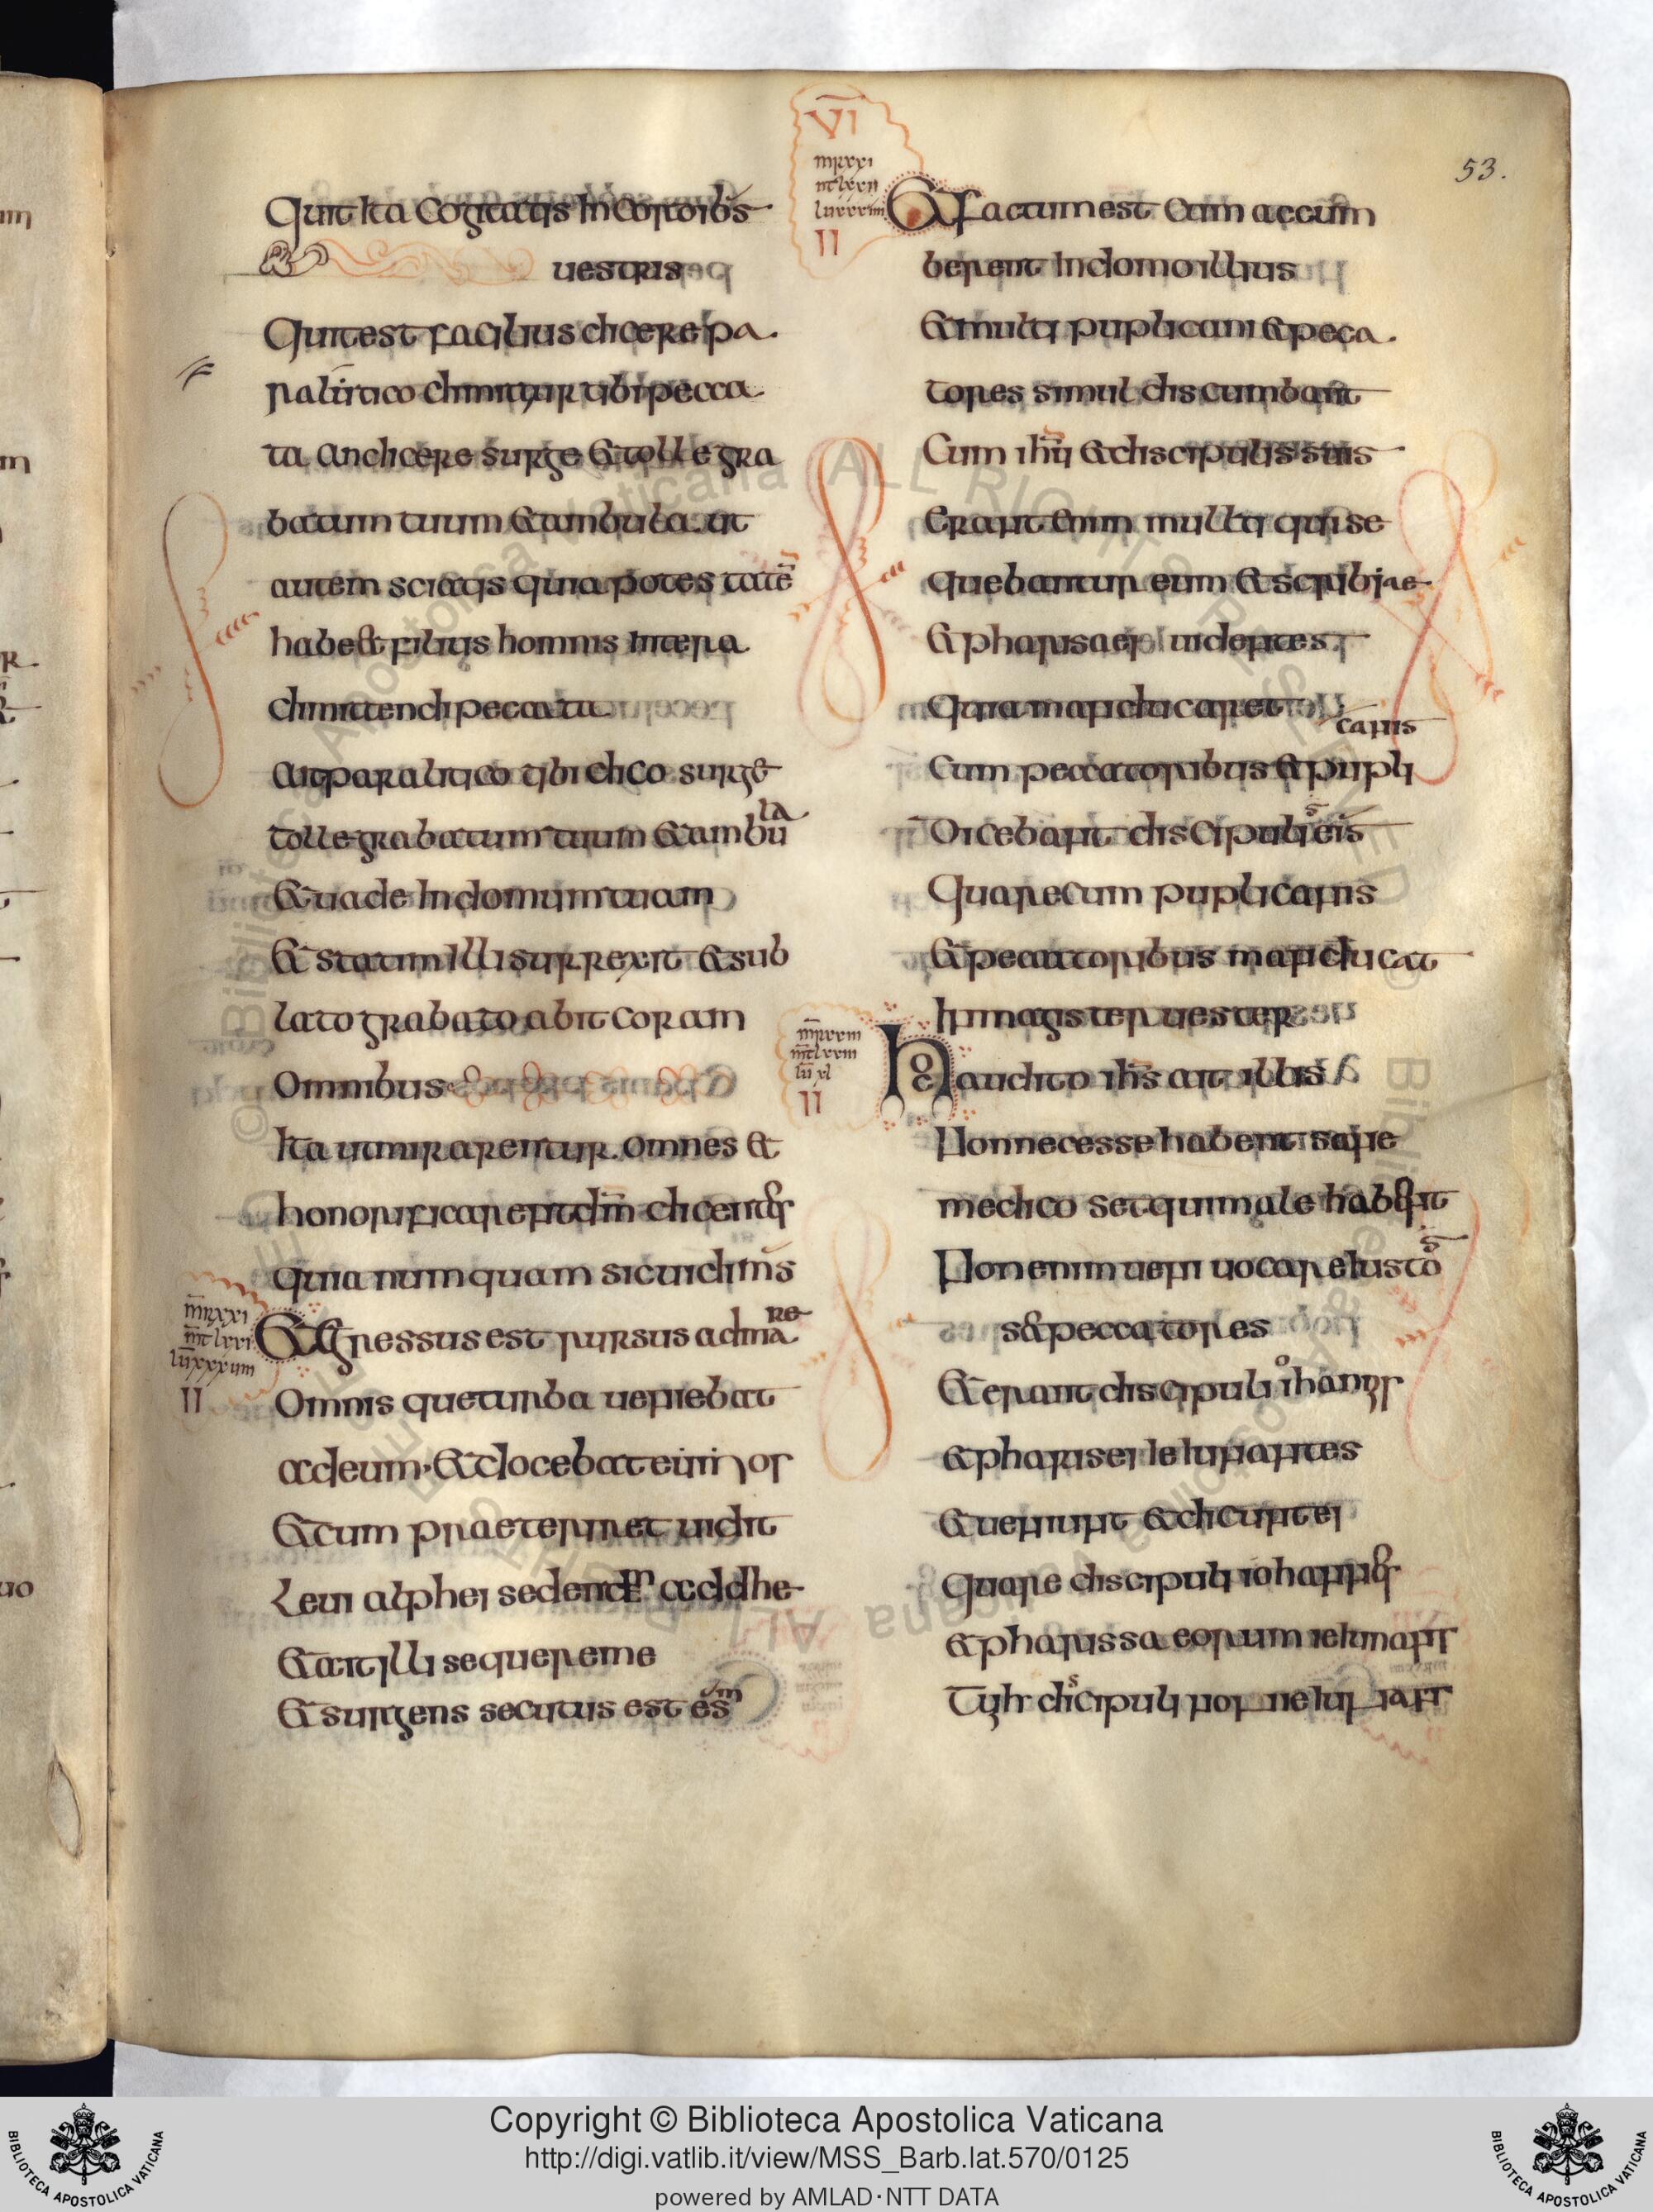 53.
Quit ita cogitatis in cortoibs
uestris
Quit est facilius dicere pa
ralitico dimitur tibi pecca
ta an dicere surge et tolle gra
batum tuum et ambula ut
autem sciatis quia potestatē
habet filius hominis in terra
dimittendi peccata
ait paralitico tibi dico surge
tolle grabatum tuum et ambu
la
et uade in domum tuam
et statim illi surrexit et sub
lato grabato abit coram
omnibus
ita ut mirarentur omnes et
honorificarent dm̄ dicentes
quia numquam sic uidims
m̄r xxi
m̄t lxxi
lū xxxuiii
II
et egressus est rursus ad ma
re
omnis que turba ueniebat
ad eum et docebat
et cum praeteriret uidit
Leui alphei sedentem
et ait illi sequere me
et surgens secutus est
VI
mr xxi
mt lxxii
II
et factum est cum accum
beret in domo illius
et multi puplicani et pecca
tores simul discumbant
Cum ihū et discipulis suis
erant enim multi qui se
quebantur eum et scribiae
et pharisaei uidentes
quia manducaret
cum peccatoribus et pupli
canis
Dicebant discipulis eis
Quare cum puplicanis
et peccatoribus manducat
hī magister uester
m̄r xxiii
m̄t lxxiii
lū xl
II
hoc audito ihs ait illis
Non necesse habent sani
medico set qui male habent
Non enim ueni uocare iustos
set peccatores
et erant discipuli iohannis
et pharisei ieiunantes
et ueniunt et dicunt ei
quare discipuli iohannis
et pharissa eorum ieiunant
Tui discipuli non ieiunant
Copyright © Biblioteca Apostolica Vaticana
http://digi.vatlib.it/view/MSS_Barb.lat.570/0125
powered by AMLAD·NTT DATA
BIBLIOTECA APOSTOLICA VATICANA
BIBLIOTECA APOSTOLICA VATICANA